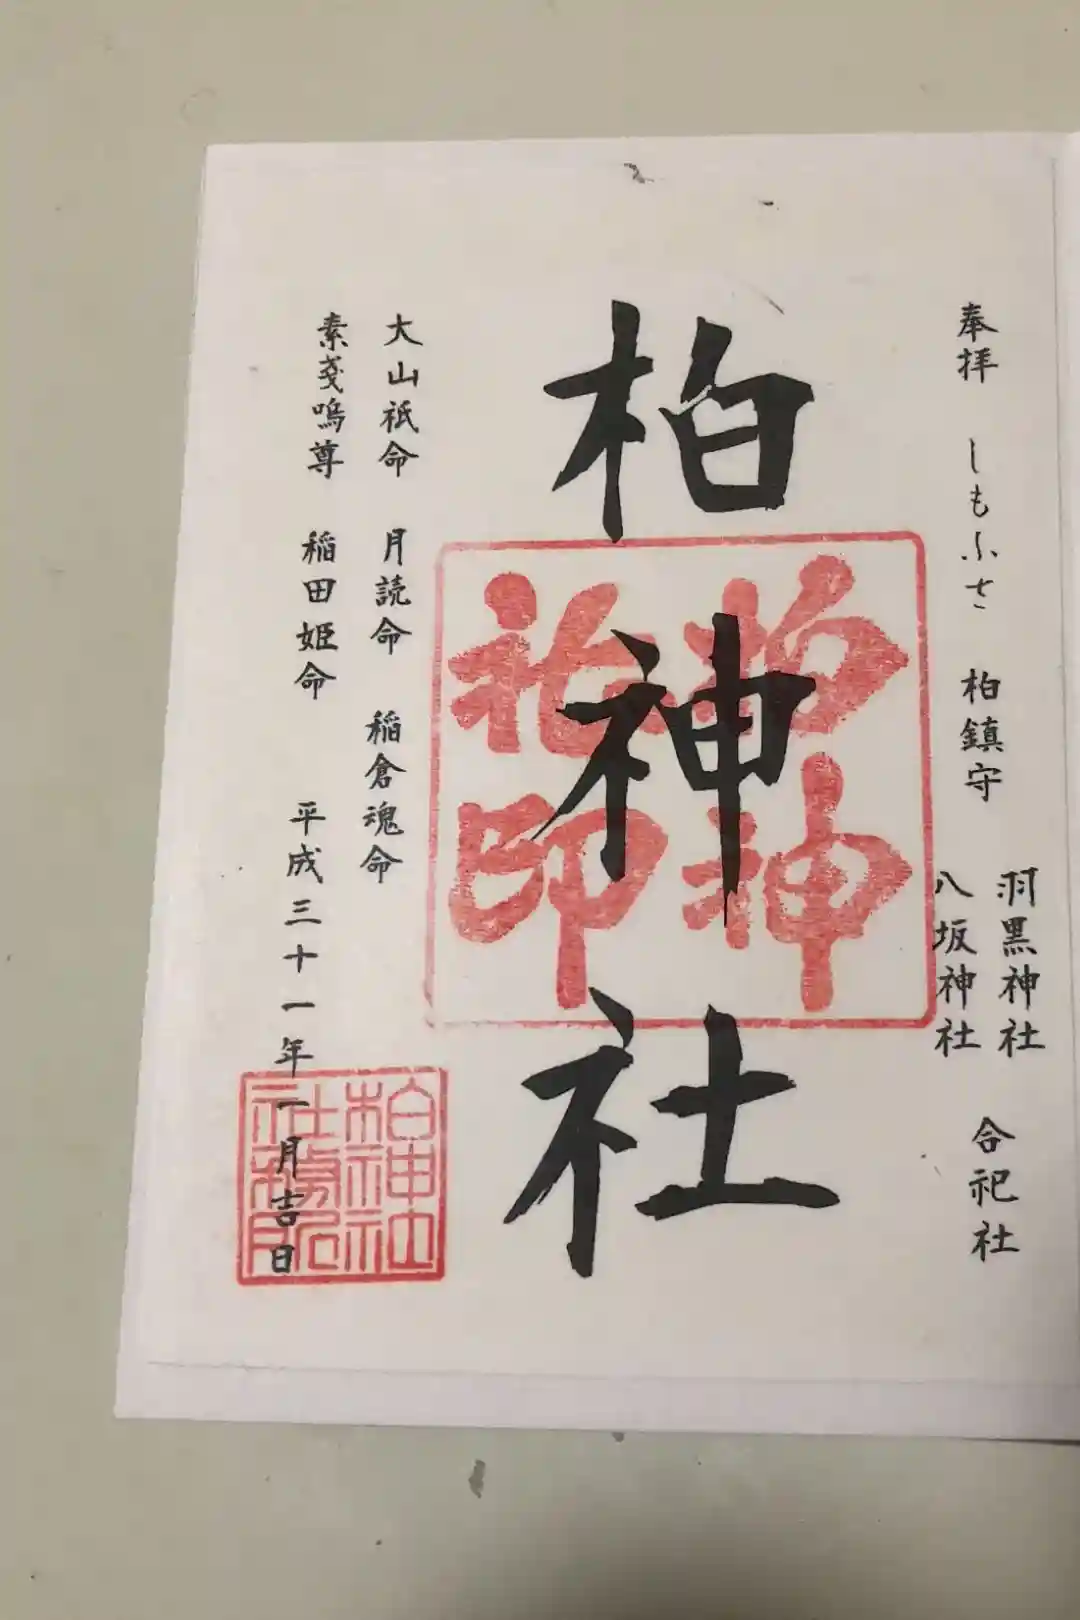 奉拝 しもふさ 柏鎮守
羽黒神社
八坂神社
合祀社
柏神社
柏神社印
大山祇命 月読命 稲倉魂命
素戔嗚尊 稲田姫命
平成三十一年一月吉日
柏神社社務所